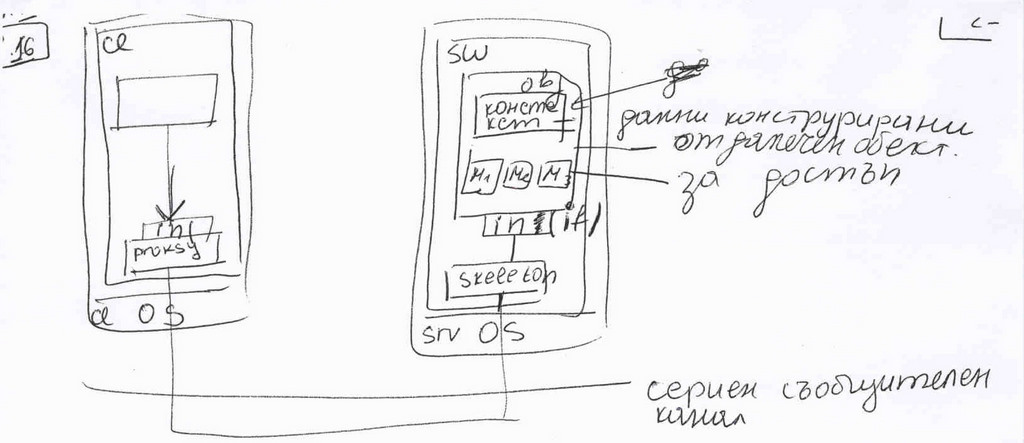 16
cl
int
proksy
cl OS
sw
ob
консте
кст
M1 M2 M3
in (if)
skeletop
srv OS
данни конструирани
отдалечен обект.
за достъп
сериен съобщителен
канал